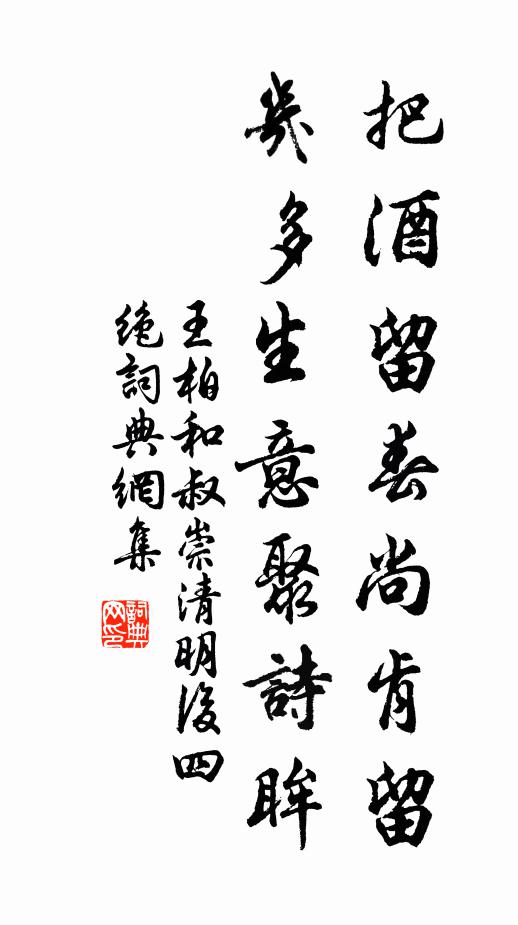 把酒留春尚肯留
幾多生意聚詩眸
王柏和叔崇清明後四
絕詞典網集
詞典网印